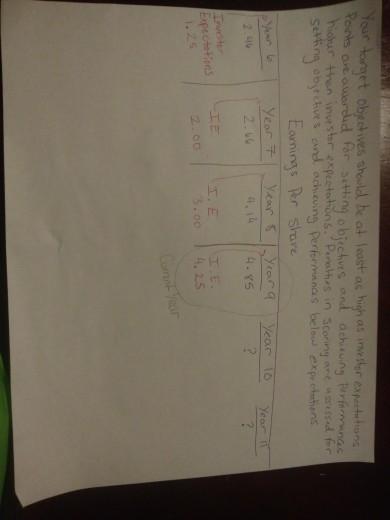 Your target objectives should be at least as high as investor expectations
Points are awarded for setting objectives and achieving performances
higher than investor expectations. Penalties in scoring are assessed for
setting objectives and achieving performances below expectations
Earnings Per Share
Year 6 Year 7 Year 8 Year 9 Year 10 Year 11
2.46 2.66 4.14 4.85 ? ?
Investor I.E I.E I.E.
Expectations 2.00 3.00 4.25
1.25
Current Year